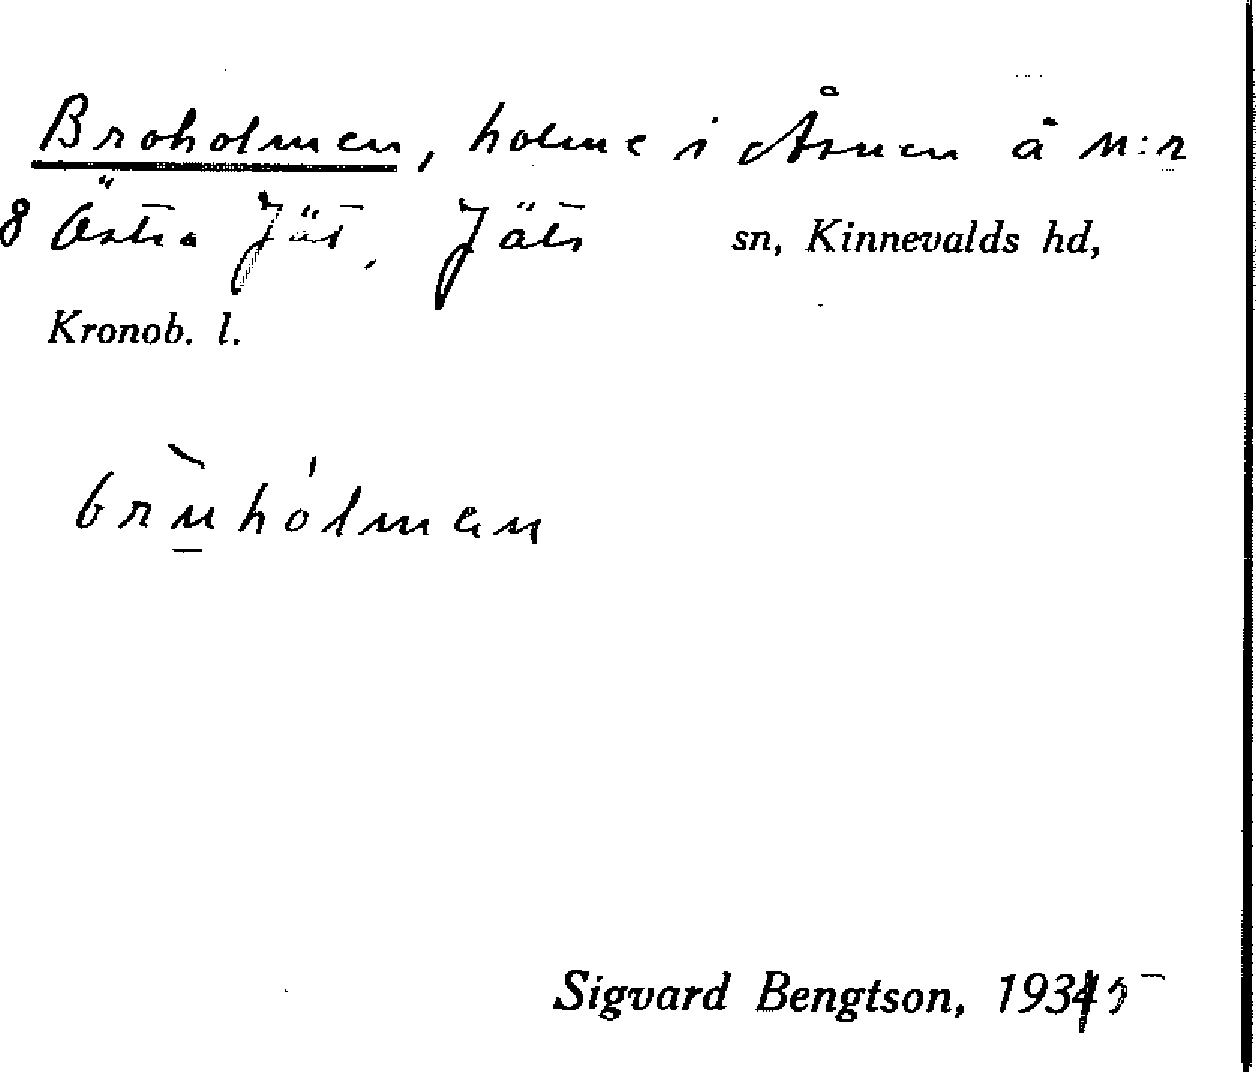 Broholmen, holme i Åsnen å n:r
8 Östra Jät, Jäts sn, Kinnevalds hd,
Kronob. l.
brùhólman
Sigvard Bengtson, 1935